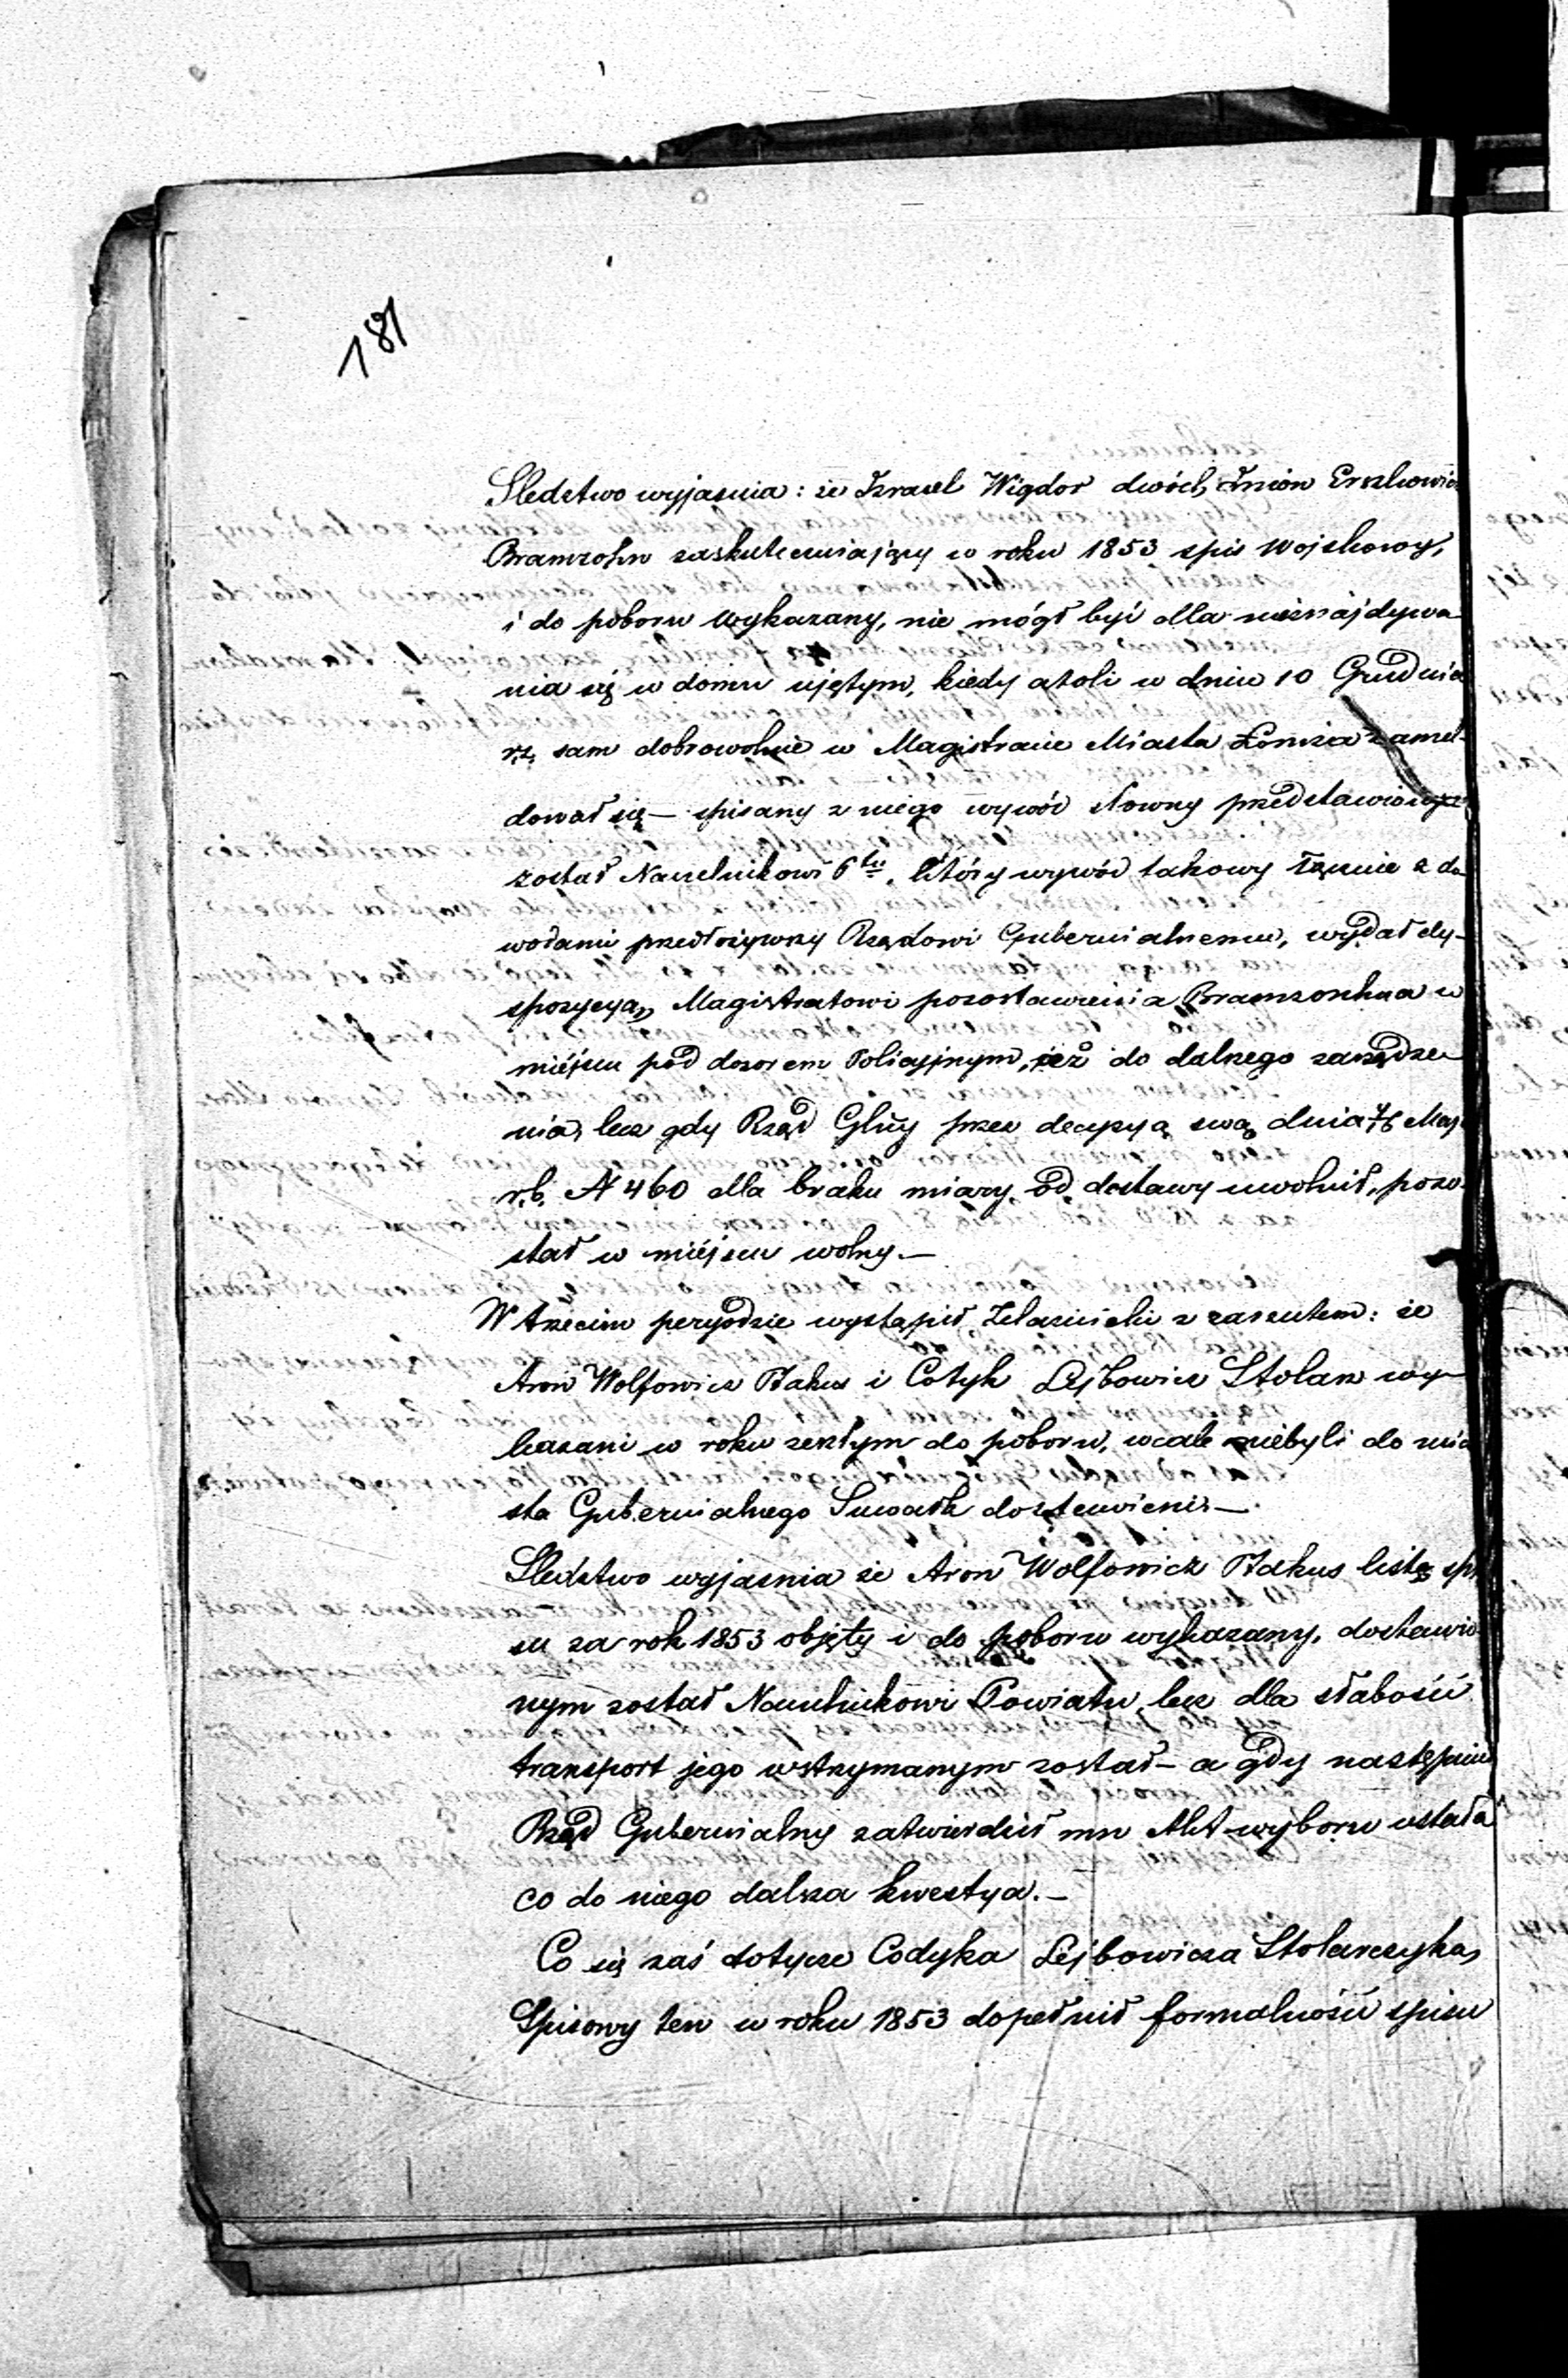 181
Sledztwo wyjasnia: że Izrael Wigdor dwóch Imion Erszkowicz
Bramzohn zaskuteczniający w roku 1853 spis Wojskowy,
i do poboru wykazany, nie mógł być dla nieznajdywa
nia się w domu ujętym, kiedy atoli w dniu 10 Grudnia
r.z. sam dobrowolnie w Magistracie Miasta Łomża zamel-
dował się — spisany z niego wywód słowny przedstawiony
został Naczelnikowi Ptu, który wywód takowy łącznie z do
wodami przedłożywszy Rządowi Gubernialnemu, wydał dy-
spozycyą Magistratowi pozostawienia Bramzonhna w
miéjscu pod dozorem Policyjnym, aż do dalszego zarządze
nia, lecz gdy Rząd Glny przez decyzyą swą dnia Maj
r.b. N 460 dla braku miary od dostawy uwolnił, pozo-
stał w miéjscu wolny.—
W trzecim peryodzie wystąpił Zelaznicki z zarzutem: że
Aron Wolfowicz Ptakus i Cotyk Lejbowicz Stolarz wy-
kazani w roku zeszłym do poboru, wcale niebyli do mia
sta Gubernialnego Suwałk dostawieni.—
Sledztwo wyjasnia że Aron Wolfowicz Ptakus listą spi
su za rok 1853 objęty i do poboru wykazany, dostawio
nym został Naczelnikowi Powiatu, lecz dla słabości
transport jego wstrzymanym został — a gdy następnie
Rząd Gubernialny zatwierdził mu Akt wyboru ustała
co do niego dalsza kwestya.—
Co się zaś dotycze Codyka Lejbowicza Stolarczyka,
Spisowy ten w roku 1853 dopełnił formalność spisu